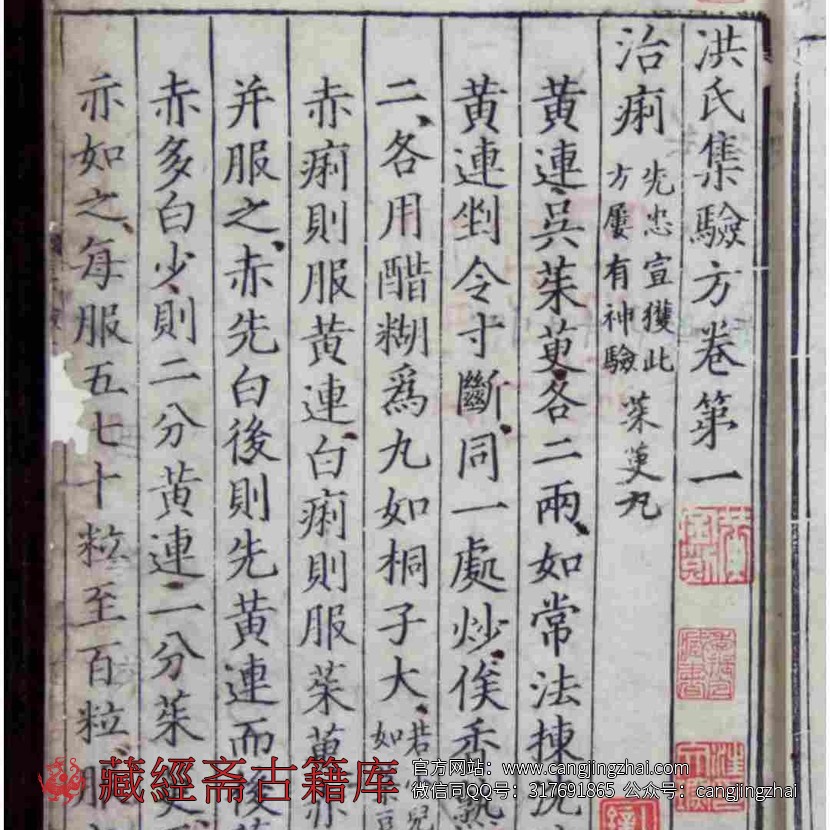 洪氏集驗方卷第一
治痢 先忠宣獲此方屢有神驗 茱萸丸
黄連吳茱萸各二兩如常法揀洗
黄連剉令寸斷同一處炒俟香
二各用醋糊爲丸如桐子大若
赤痢則服黄連白痢則服茱萸赤
并服之赤先白後則先黄連而後
赤多白少則二分黄連一分茱
亦如之每服五七十粒至百粒服
藏經斋古籍库
官方网站：www.cangjingzhai.com
微信同QQ号：317691865 公众号：cangjingzhai